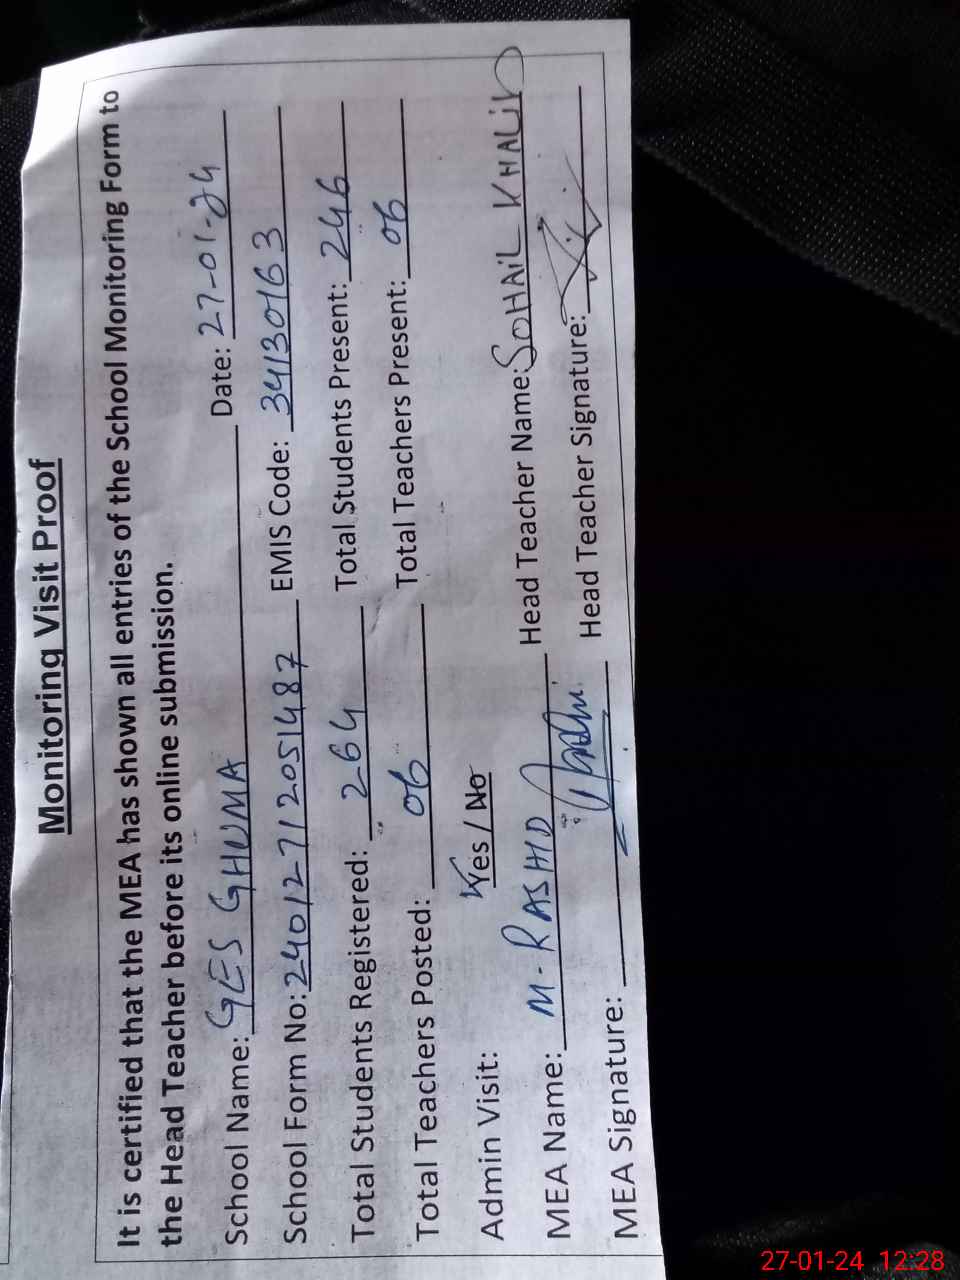 Monitoring Visit Proof
It is certified that the MEA has shown all entries of the School Monitoring Form to
the Head Teacher before its online submission.
School Name: GES GHUMA Date: 27-01-24
School Form No: 24012712051487 EMIS Code: 34130163
Total Students Registered: 264 Total Students Present: 246
Total Teachers Posted: 06 Total Teachers Present: 06
Admin Visit: Yes / No
MEA Name: M. RASHID Head Teacher Name: SOHAIL KHALID
MEA Signature: Head Teacher Signature:
27-01-24 12:28